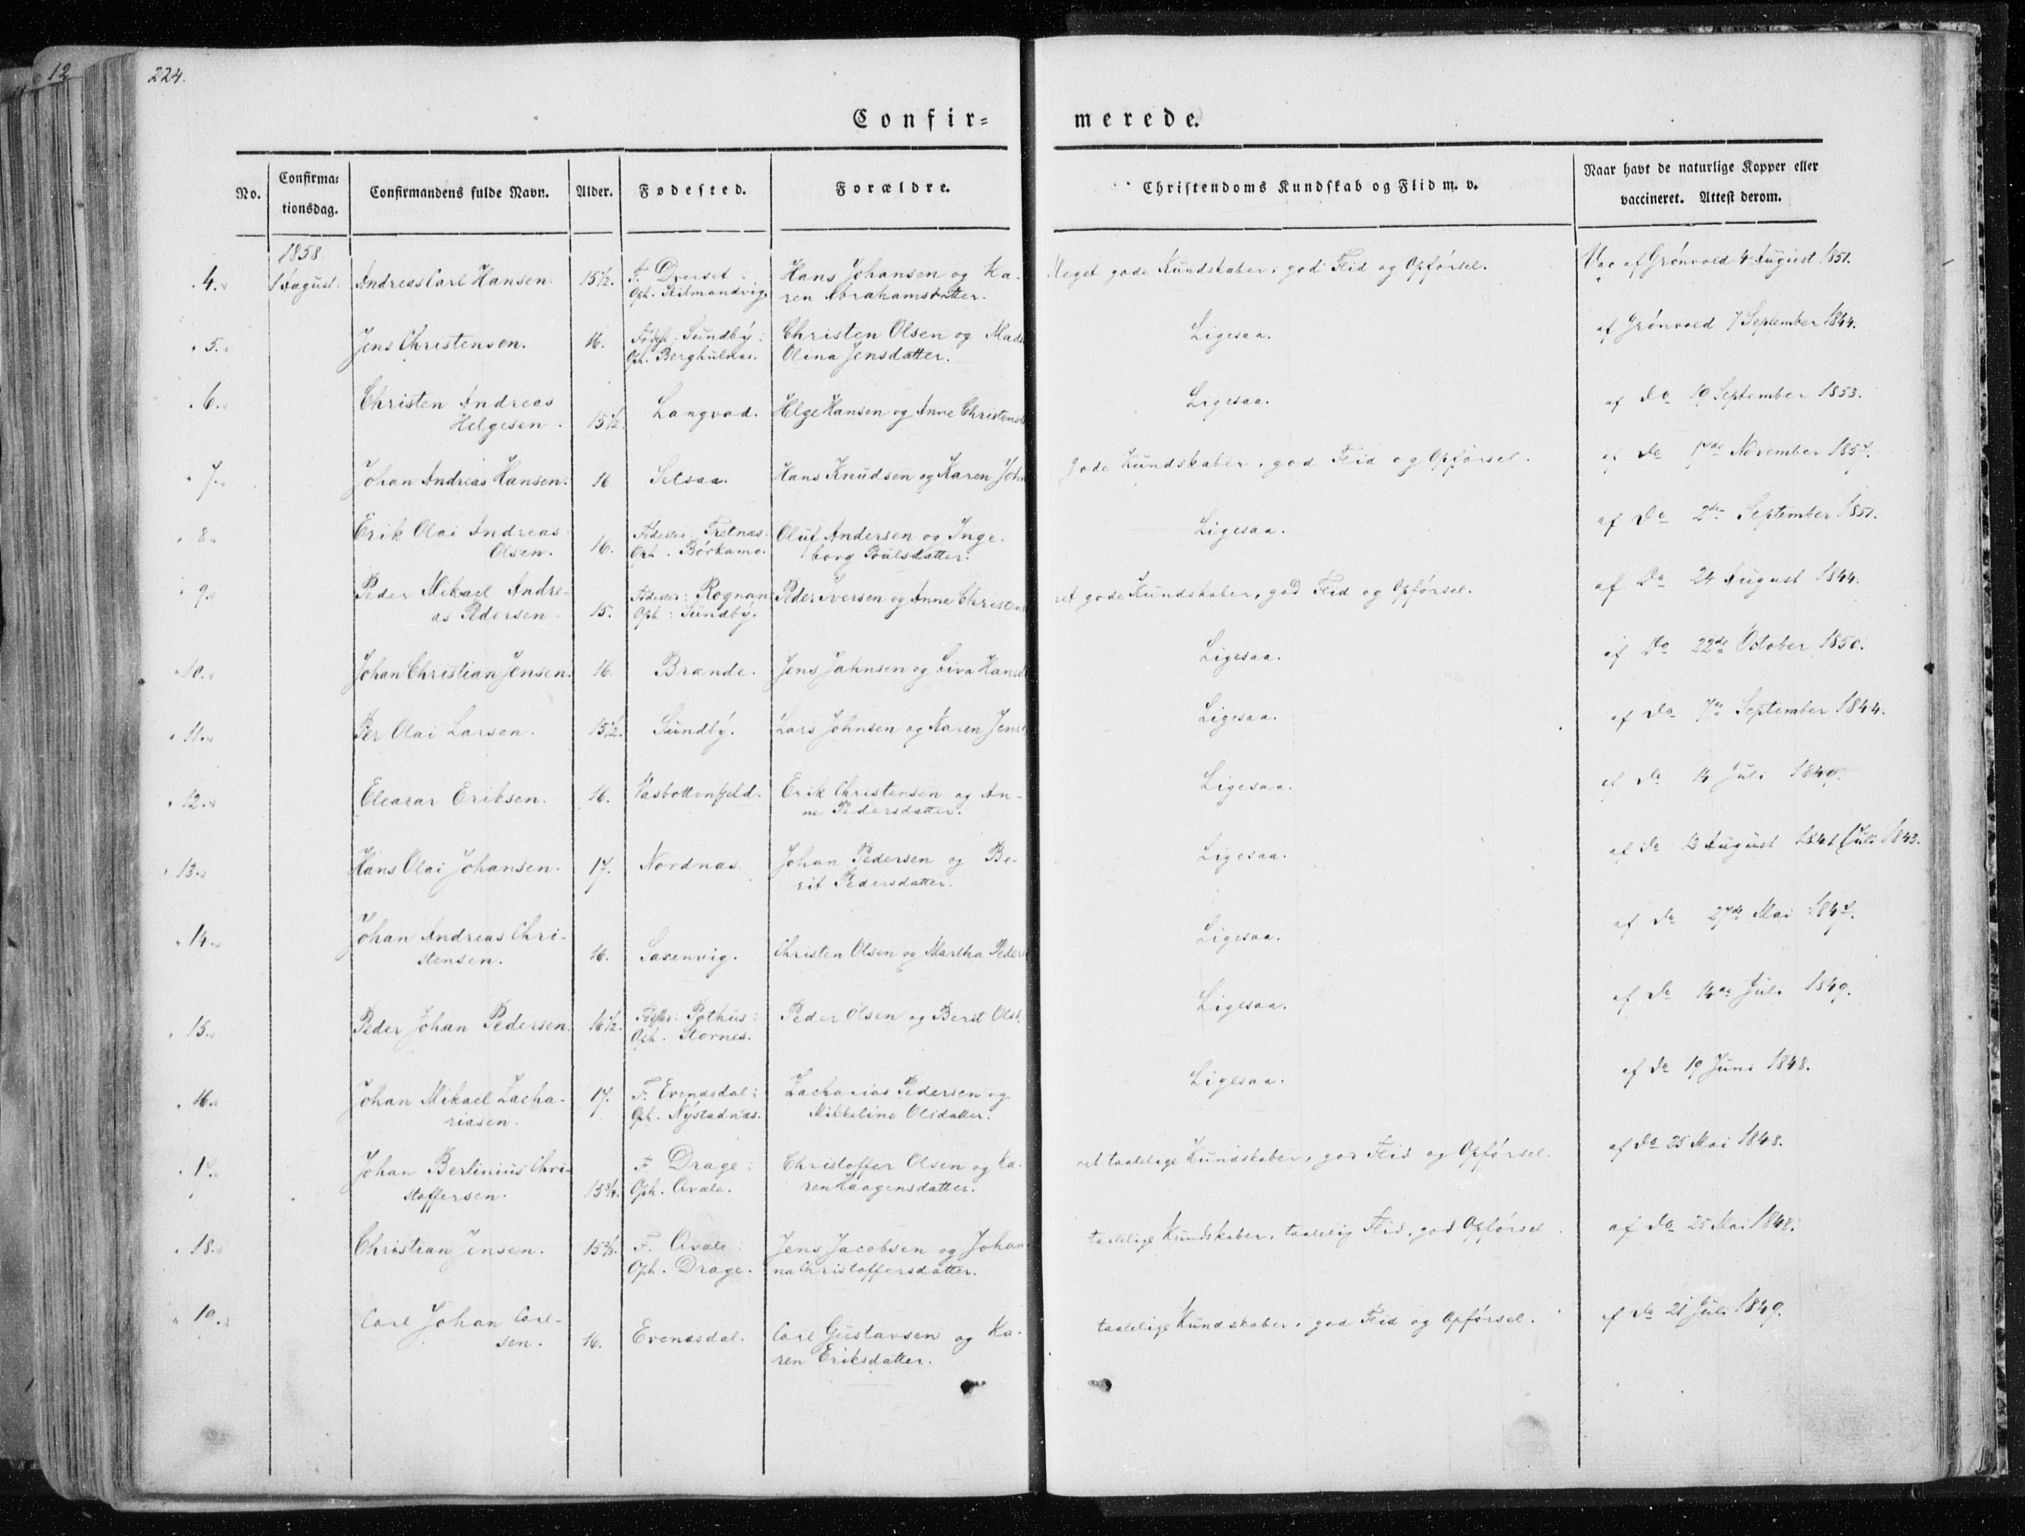 12
224.
Confir=
merede.
No.
Confirma=
tionsdag.
Confirmandens fulde Navn.
Alder.
Fødested.
Forældre.
Christendoms Kundskab og Flid m. v.
Naar havt de naturlige Kopper eller
vaccineret. Attest derom.
1858
4. 1 August. Andreas Carl Hansen. 15 1/2. F. Dverset: Hans Johansen og Ka- Meget gode Kundskaber, god Flid og Opførsel. Vac af Grønvold 4 August 1851.
Oph. Skilmandvig. ren Abrahamsdatter.
5. Jens Christensen. 16. Sundby: Christen Olsen og Mads Ligesaa. af Grønvold 7 September 1844.
Oph. Berghulnes. Olina Jensdatter.
6. Christen Andreas Ligesaa. af Do 19 September 1853.
Helgesen. 15 1/2. Langvad. Helge Hansen og Anne Christensd
7. Johan Andreas Hansen. 16 Selsaa. Hans Knudsen og Karen John gode Kundskaber, god Flid og Opførsel. af Do November
8. Erik Olai Andreas Fødester: Fretnæs: Oluf Andersen og Inge- Ligesaa. af Do 2den September 1851.
Olsen. 16. Oph. Børkamo. borg Poulsdatter.
9. Peder Mikael Andre- Fødester: Rognan Peder Iversen og Anne Christens ret gode Kundskaber, god Flid og Opførsel. af Do 24 August 1844.
as Pedersen. 15. Oph: Sundby.
10. Johan Christian Jensen. 16. Brænde. Jens Jahnsen og Liva Hansd Ligesaa. af Do 22de October 1850.
11. Per Olai Larsen. 15 1/2. Sundby. Lars Johnsen og Karen Jens Ligesaa. af Do 7de September 1844.
12. Eleasar Eriksen. 16. Vasbottenfjeld. Erik Christensen og An- Ligesaa. af Do 14 Juli 1849.
ne Pedersdatter.
13. Hans Olai Johansen. 17. Nordnæs. Johan Pedersen og Be- Ligesaa. af Do 13 August 1841 Juli 1843.
rit Pedersdatter.
14. Johan Andreas Chri- Ligesaa. af Do 27de Mai 1847.
stensen. 16. Saxenvig. Christen Olsen og Martha Peders
15. Peder Johan Pedersen. 16 1/2. Pothus: Peder Olsen og Berit Olsd. Ligesaa. af Do 14de Juli 1849.
Oph. Stornes.
16. Johan Mikael Zacha- 17. F. Evenæsdal: Zacharias Pedersen og Ligesaa. af Do 19 Juni 1848.
riasen. Oph. Nystadnæs. Mikkeline Olsdatter.
17. Johan Bertinius Chri- F. Drage: Christoffer Olsen og Ka- ret taalelige Kundskaber, god Flid og Opførsel. af Do 25 Mai 1848.
stoffersen. 15 3/4. Oph. Qvale. ren Haagensdatter.
18. Christian Jensen. 15 3/4. F. Qvale: Jens Jacobsen og Johan- taalelige Kundskaber, taalelig Flid, god Opførsel. af Do 25 Mai 1848.
Oph. Drage. na Christoffersdatter.
19. Carl Johan Carl- taalelige Kundskaber, god Flid og Opførsel. af Do 21 Juli 1849.
sen. 16. Evenæsdal. Carl Gustavsen og Ka-
ren Eriksdatter.